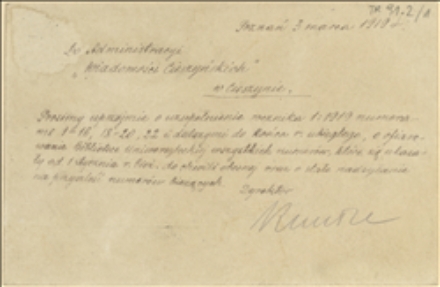 Poznań 3 marca 191
Do Administracyi
„Wiadomości Cieszyńskich"
w Cieszynie.
Prosimy uprzejmie o uzupełnienie rocznika 1919 numera-
mi 1-16, 18-20, 22 i dalszymi do końca r. ubiegłego, o ofiaro-
wanie Bibliotece Uniwersyteckiej wszystkich numerów, które się ukaza-
ły od 1 stycznia r. do chwili obecnej oraz o stałe nadsyłanie
na przyszłość numerów bieżących.
Dyrektor